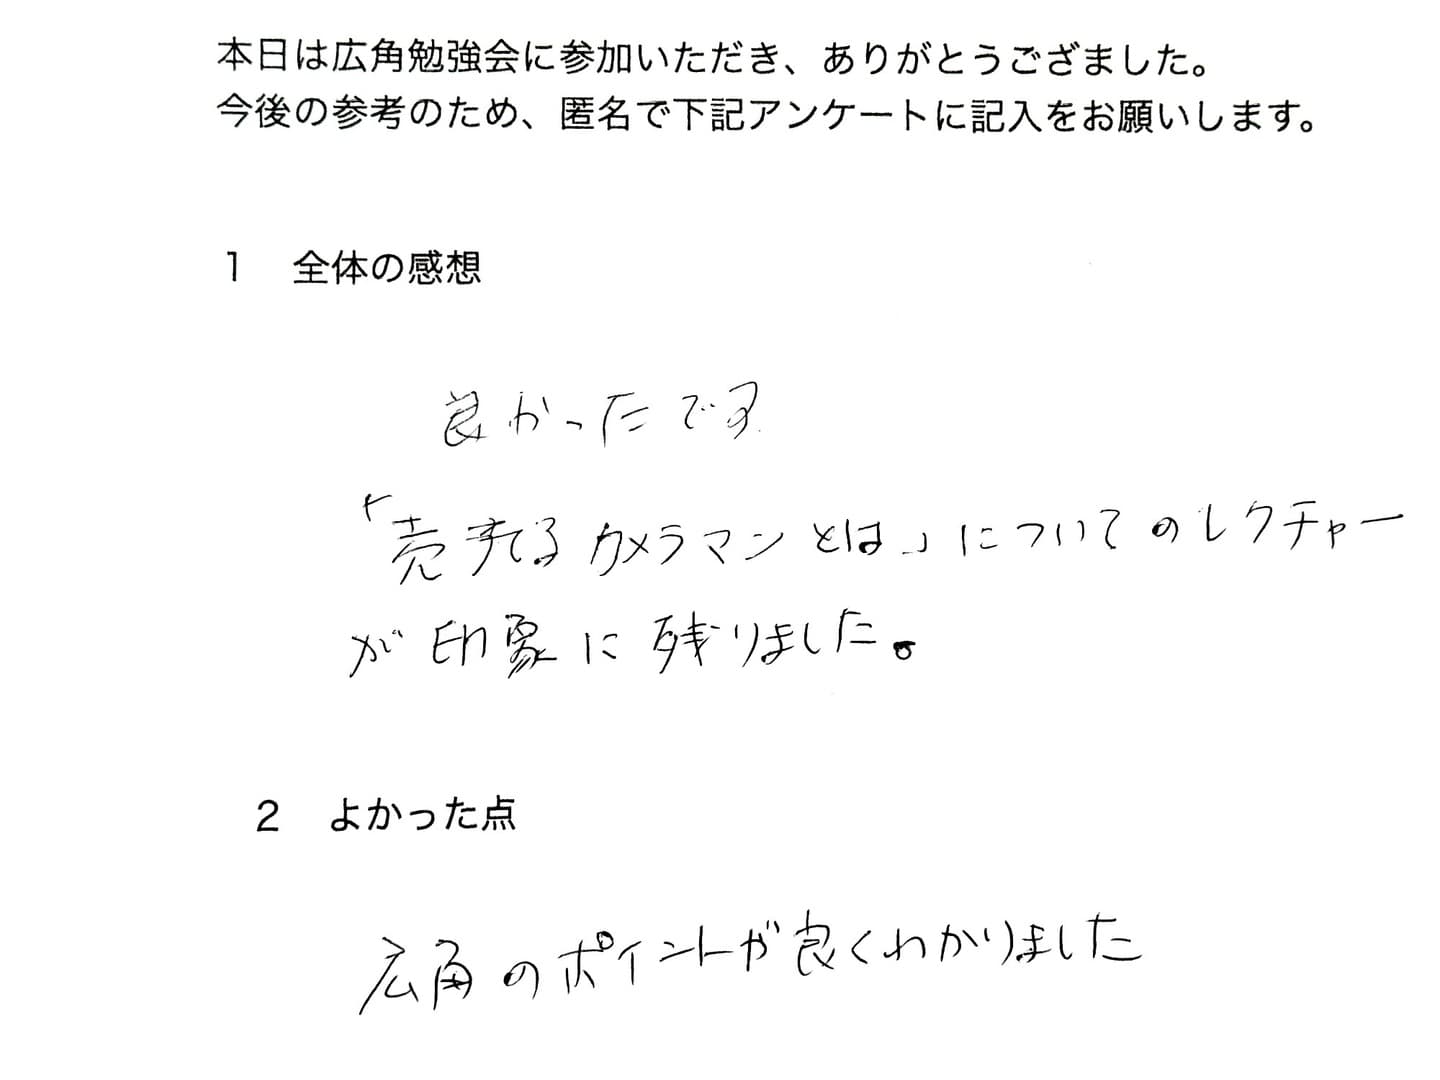 本日は広角勉強会に参加いただき、ありがとうござました。
今後の参考のため、匿名で下記アンケートに記入をお願いします。
1　全体の感想
良かったです
「売れてるカメラマンとは」についてのレクチャー
が印象に残りました。
2　よかった点
広角のポイントが良くわかりました